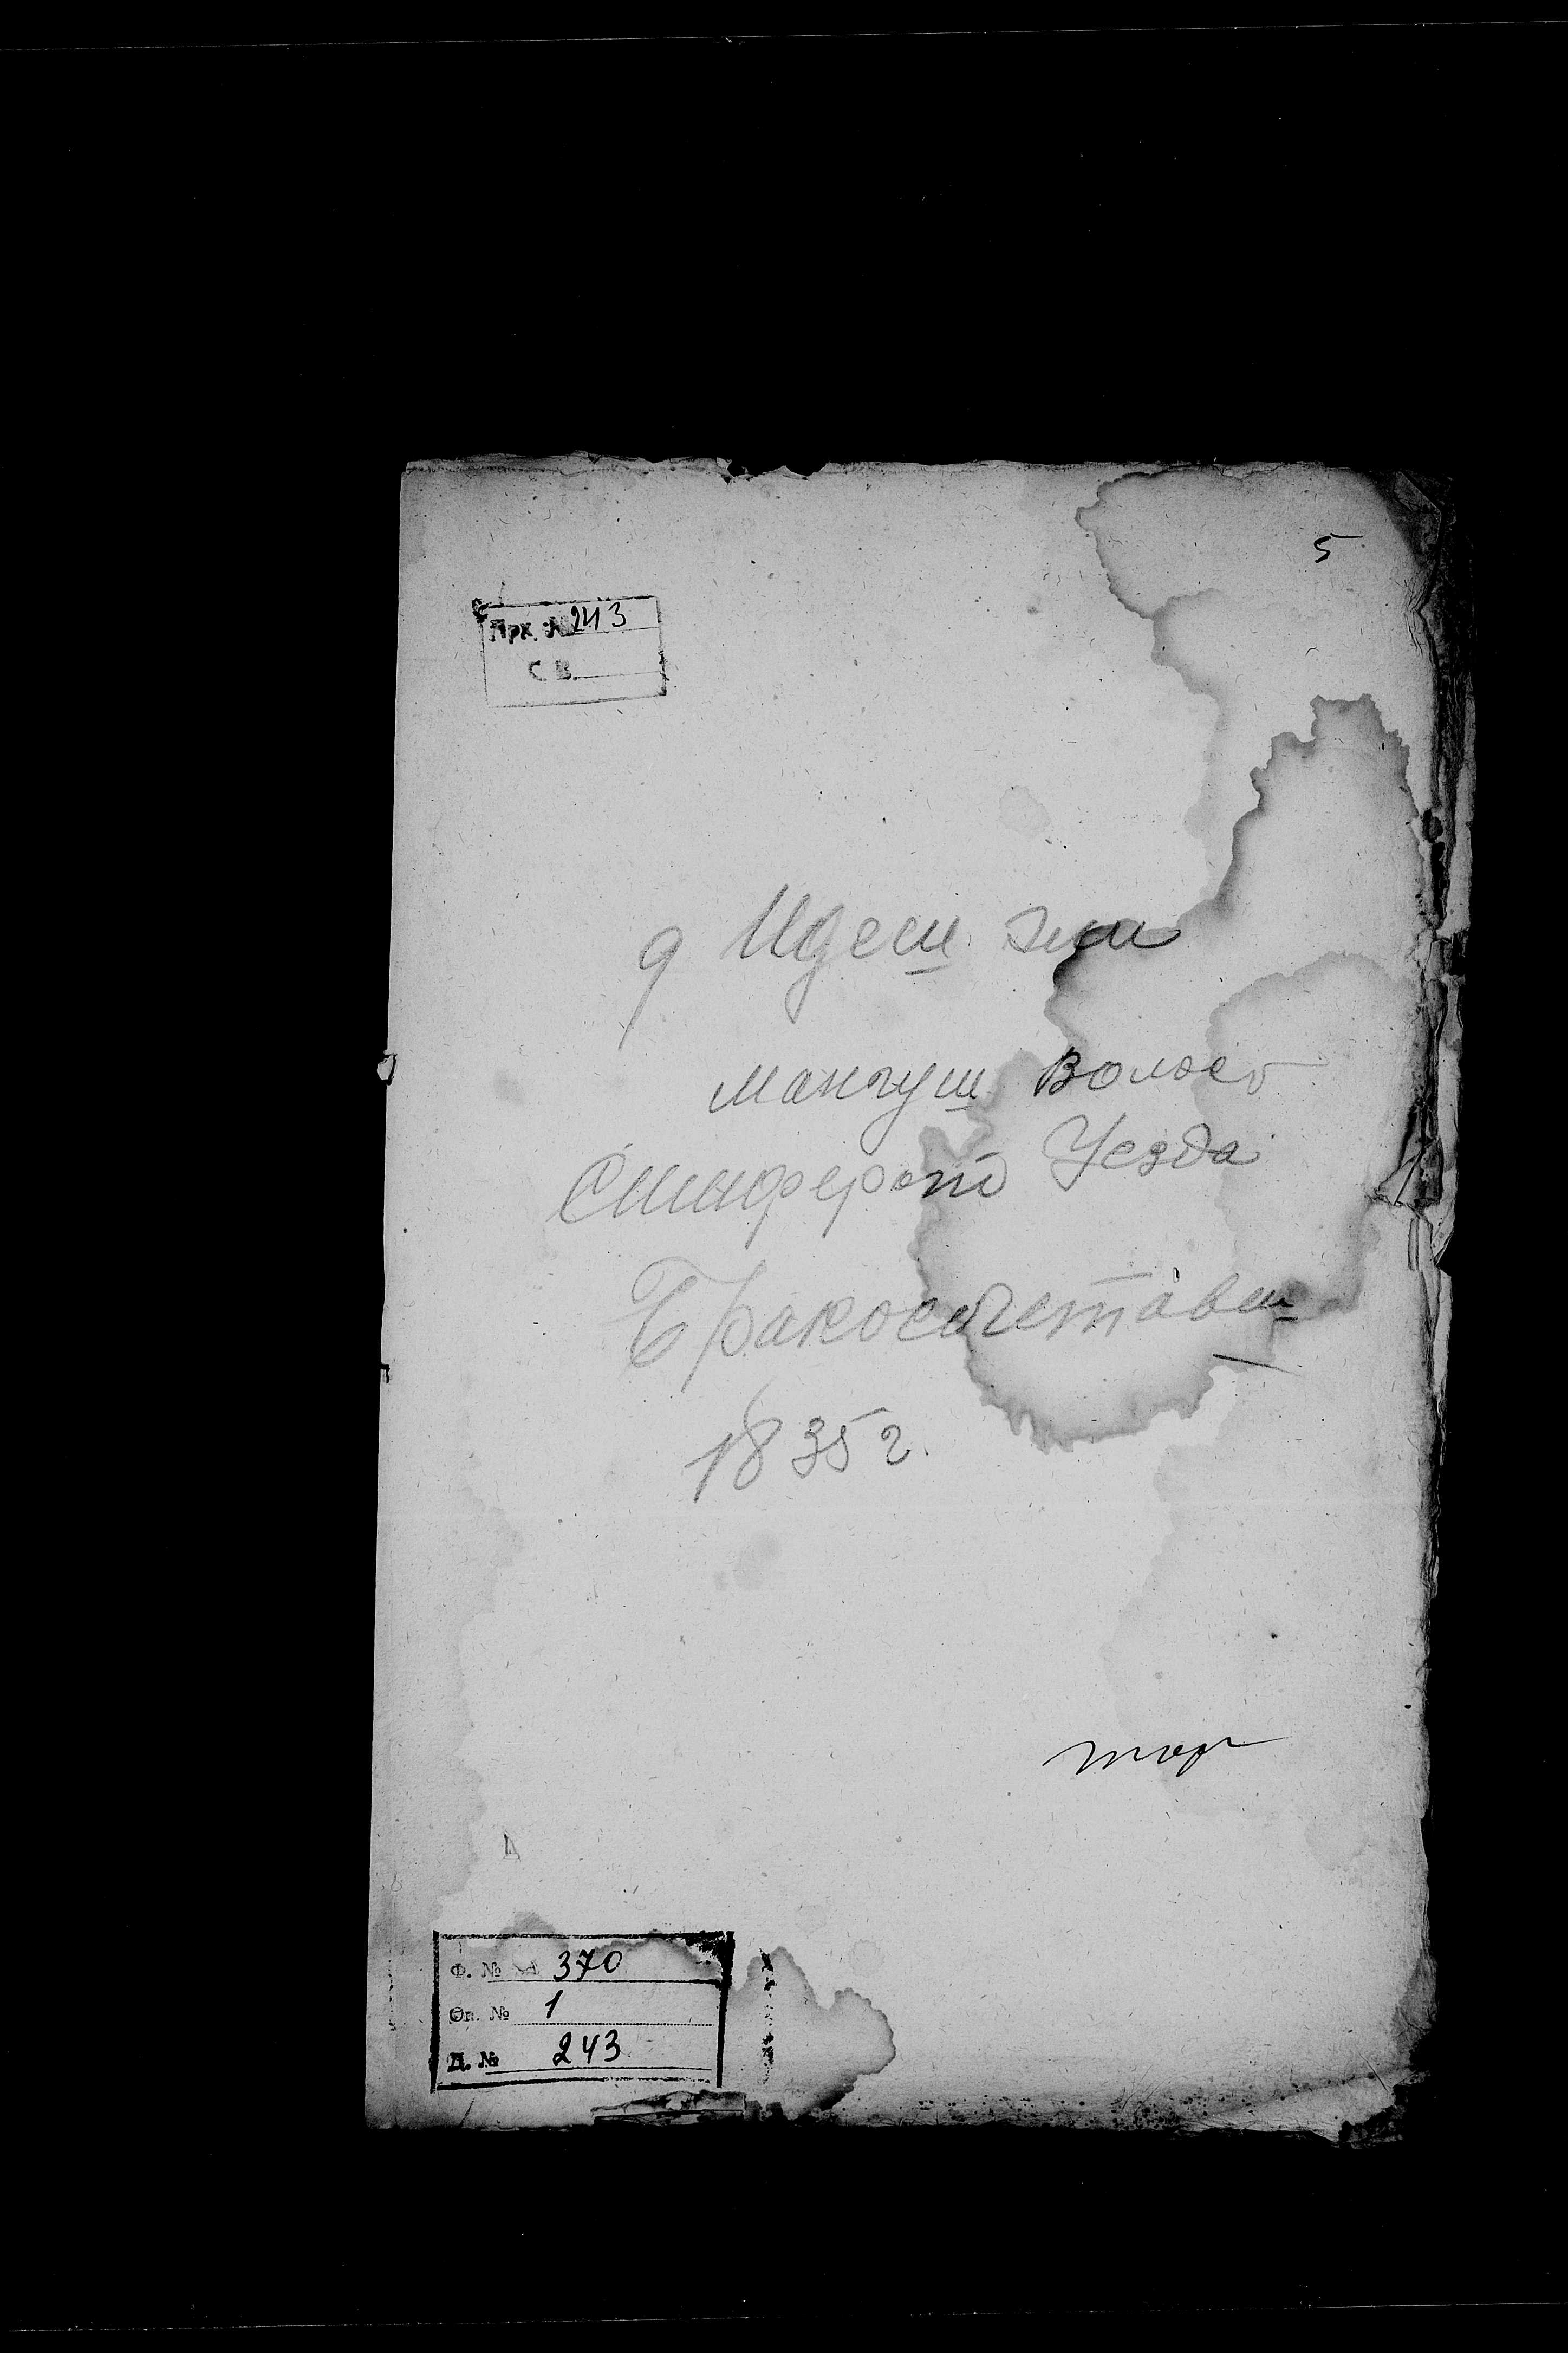 5
Арх. № 243
С В.
д Идеш эли
мангуш Волост
Симферопо Уезда
Бракосочетавш
1835 г.
Ф. № 370
Оп. № 1
Д. № 243